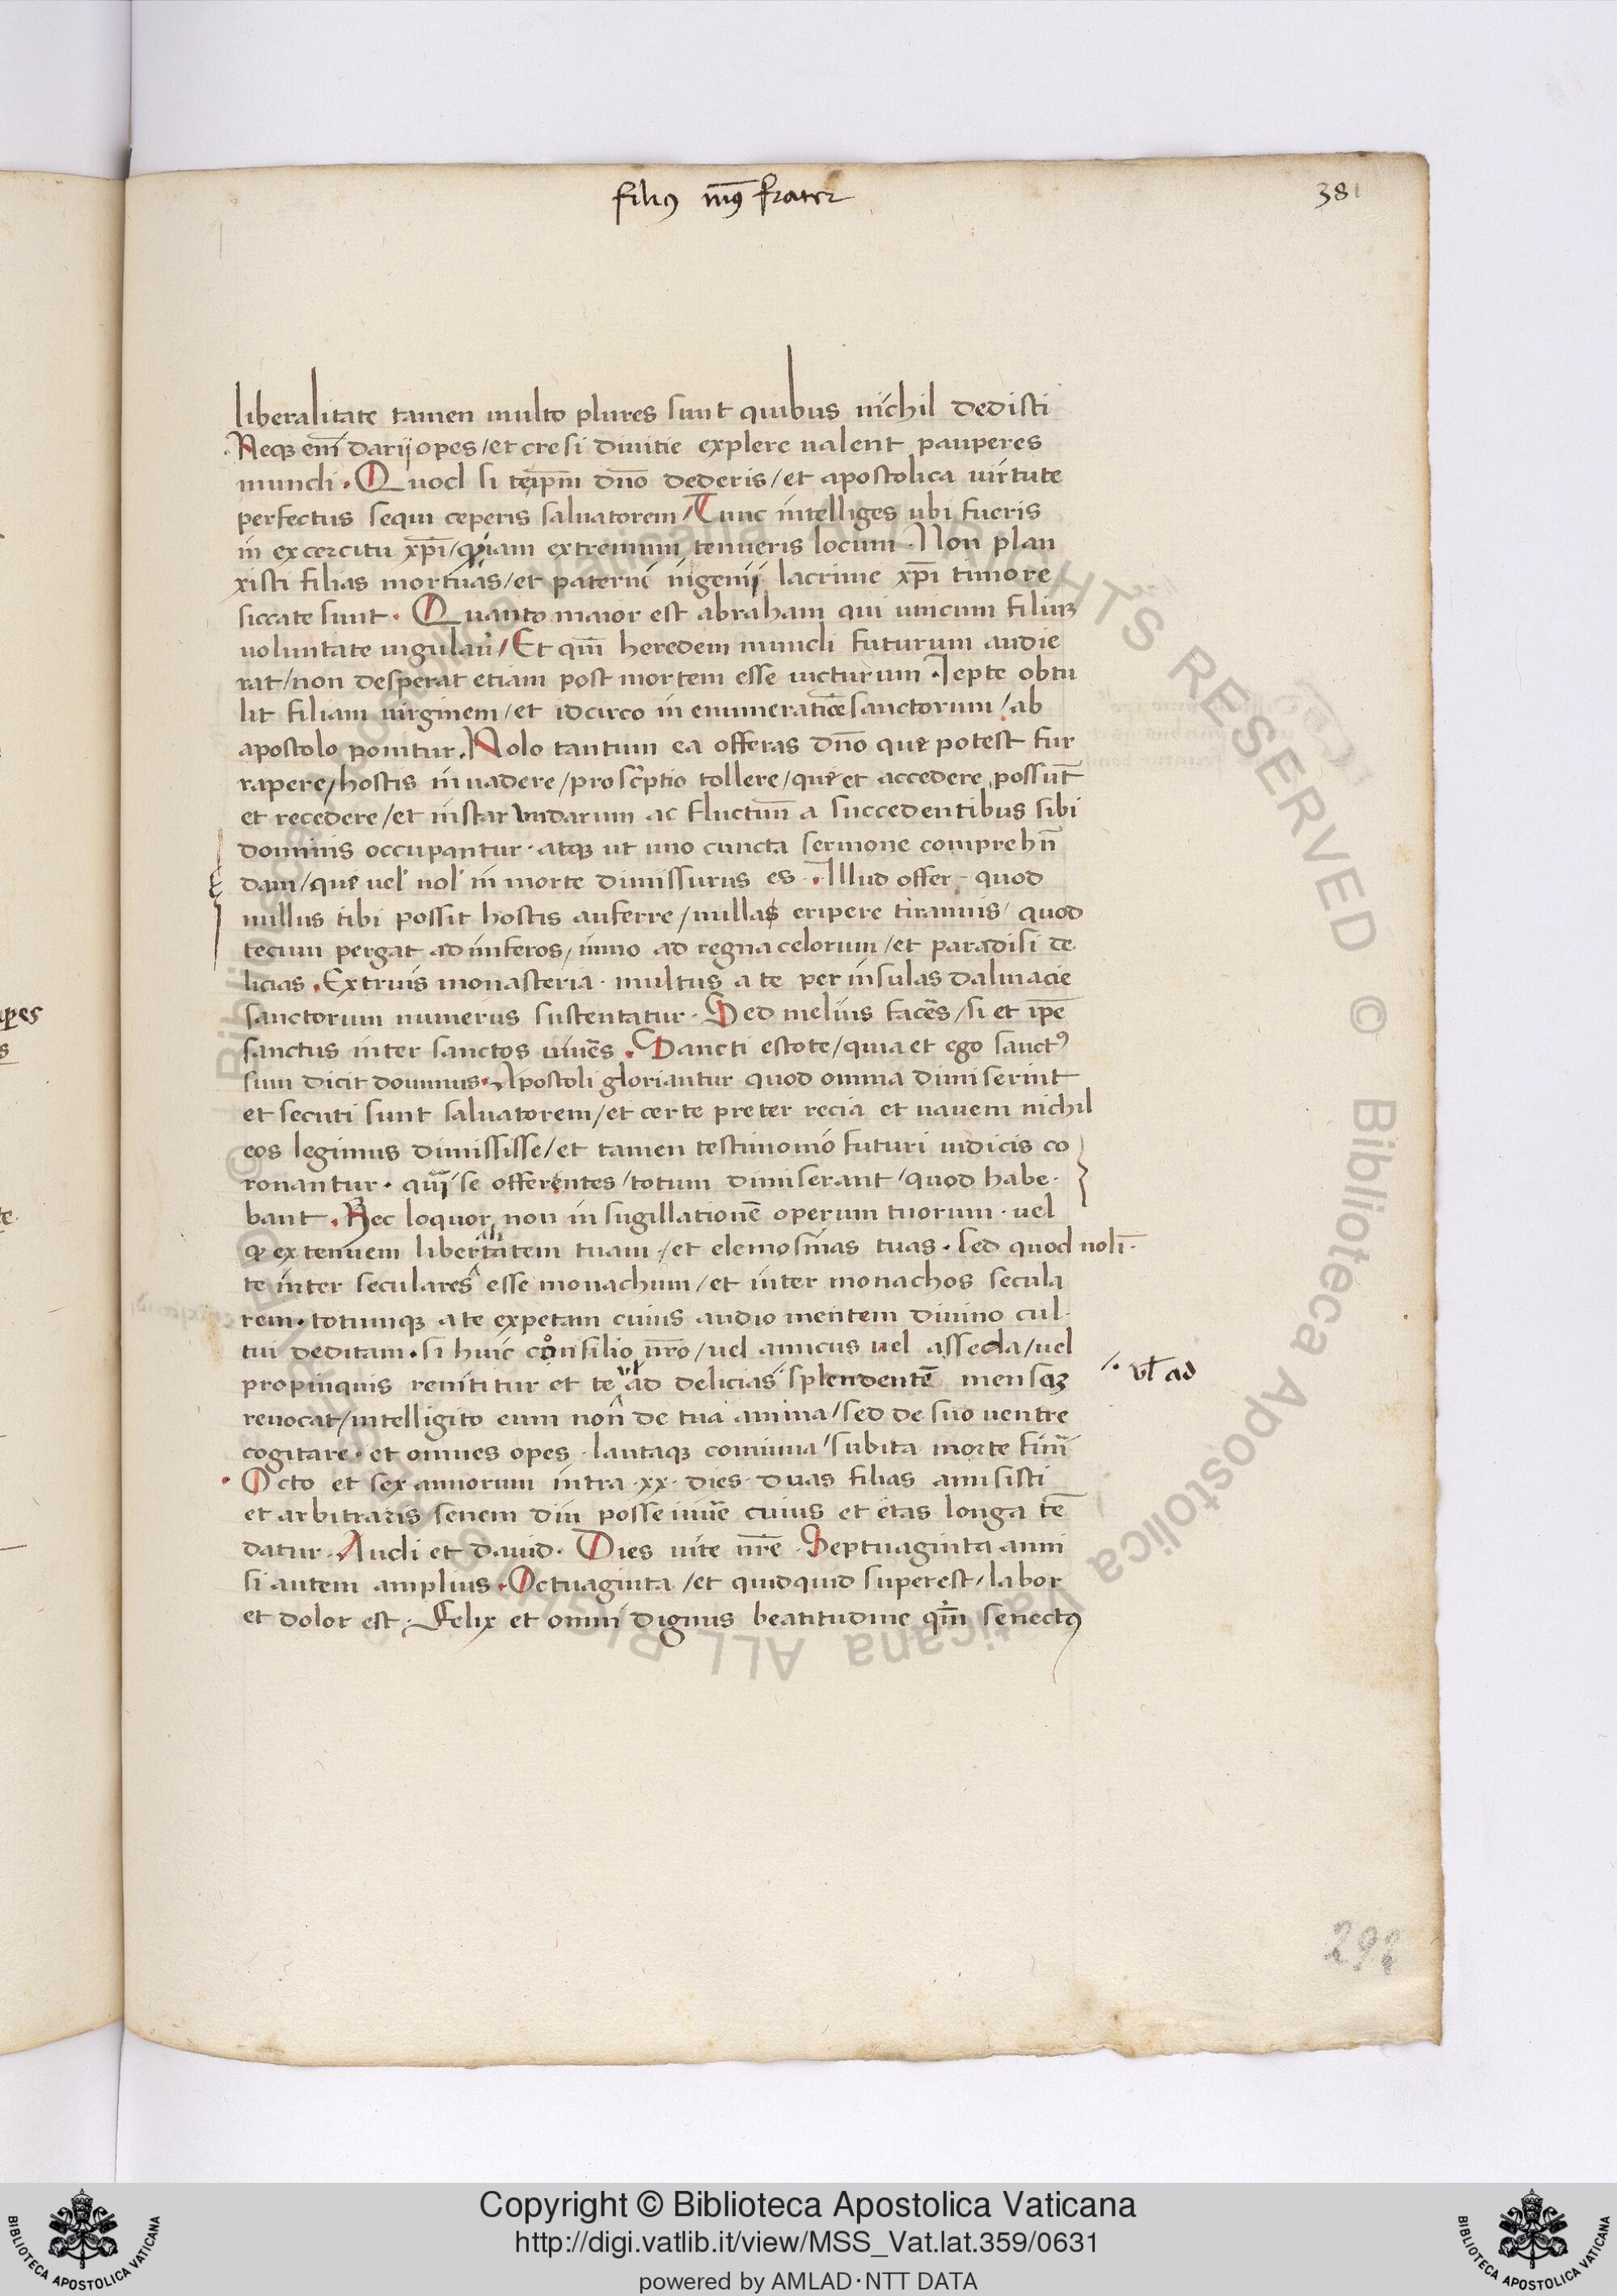 filiꝯ mꝰ frater
381
liberalitate tamen multo plures sunt quibus nichil dedisti
Neqꝫ eni᷑ darij opes / et cresi diuitie explere ualent pauperes
mundi . Quod si teip̄m dn̄o dederis / et apostolica uirtute
perfectus sequi ceperis saluatorem / Tunc intelliges ubi fueris
in excercitu xp̄i / quam extremum tenueris locum . Non plan
xisti filias mortuas / et paterni ingenij lacrime xp̄i timore
siccate sunt . Quanto maior est abraham qui unicum filiuꝫ
uoluntate iugulau᷑ / Et qm̄ heredem mundi futurum audie
rat / non desperat etiam post mortem esse uicturum . Jepte obtu
lit filiam uirginem / et idcirco in enumeratiōe sanctorum / ab
apostolo ponitur . Nolo tantum ea offeras dn̄o que potest fur
rapere / hostis inuadere / proscͥptio tollere / que et accedere possut̄
et recedere / et instar undarum ac fluctuū a succedentibus sibi
dominis occupantur . atqꝫ ut uno cuncta sermone comprehn̄
dam / que uel nol᷑ in morte dimissurus es . Illud offer - quod
nullus tibi possit hostis auferre / nullas eripere tirannis / quod
tecum pergat ad inferos / immo ad regna celorum / et paradisi de
licias . Extruis monasteria . multus a te per insulas dalmacie
sanctorum numerus sustentatur . Sed melius facēs / si et ip̄e
sanctus inter sanctos uiuēs . Sancti estote / quia et ego sanctꝰ
sum dicit dominus . Apostoli gloriantur quod omnia dimiserint
et secuti sunt saluatorem / et certe preter recia et nauem nichil
eos legimus dimississe / et tamen testimonio futuri iudicis co
ronantur . qui se offerentes / totum dimiserant / quod habe .
bant . Hec loquor non in sugillationē operum tuorum . uel
ꝙ extenuem libertatem tuam / et elemosinas tuas . sed quod nolī .
te inter seculares esse monachum / et inter monachos secula
rem . totumqꝫ a te expetam cuius audio mentem diuino cul .
tui deditam . si huic consilio nr̄o / uel amicus uel assecla / uel
propinquis renititur et te ad delicias splendentē mensaꝫ
vl̄ ad
reuocat / intelligito eum non de tua anima / sed de suo uentre
cogitare . et omnes opes . lautaqꝫ conuiuia / subita morte finiī
Octo et sex annorum intra . xx . dies . duas filias amisisti
et arbitraris senem diu posse uiuē cuius et etas longa tē
datur . Audi et dauid . Dies uite nr̄e . Septuaginta anni
si autem amplius . Octuaginta / et quidquid superest / labor
et dolor est . Felix et omni dignus beatitudine qm̄ senectꝰ
292
Copyright © Biblioteca Apostolica Vaticana
http://digi.vatlib.it/view/MSS_Vat.lat.359/0631
powered by AMLAD·NTT DATA